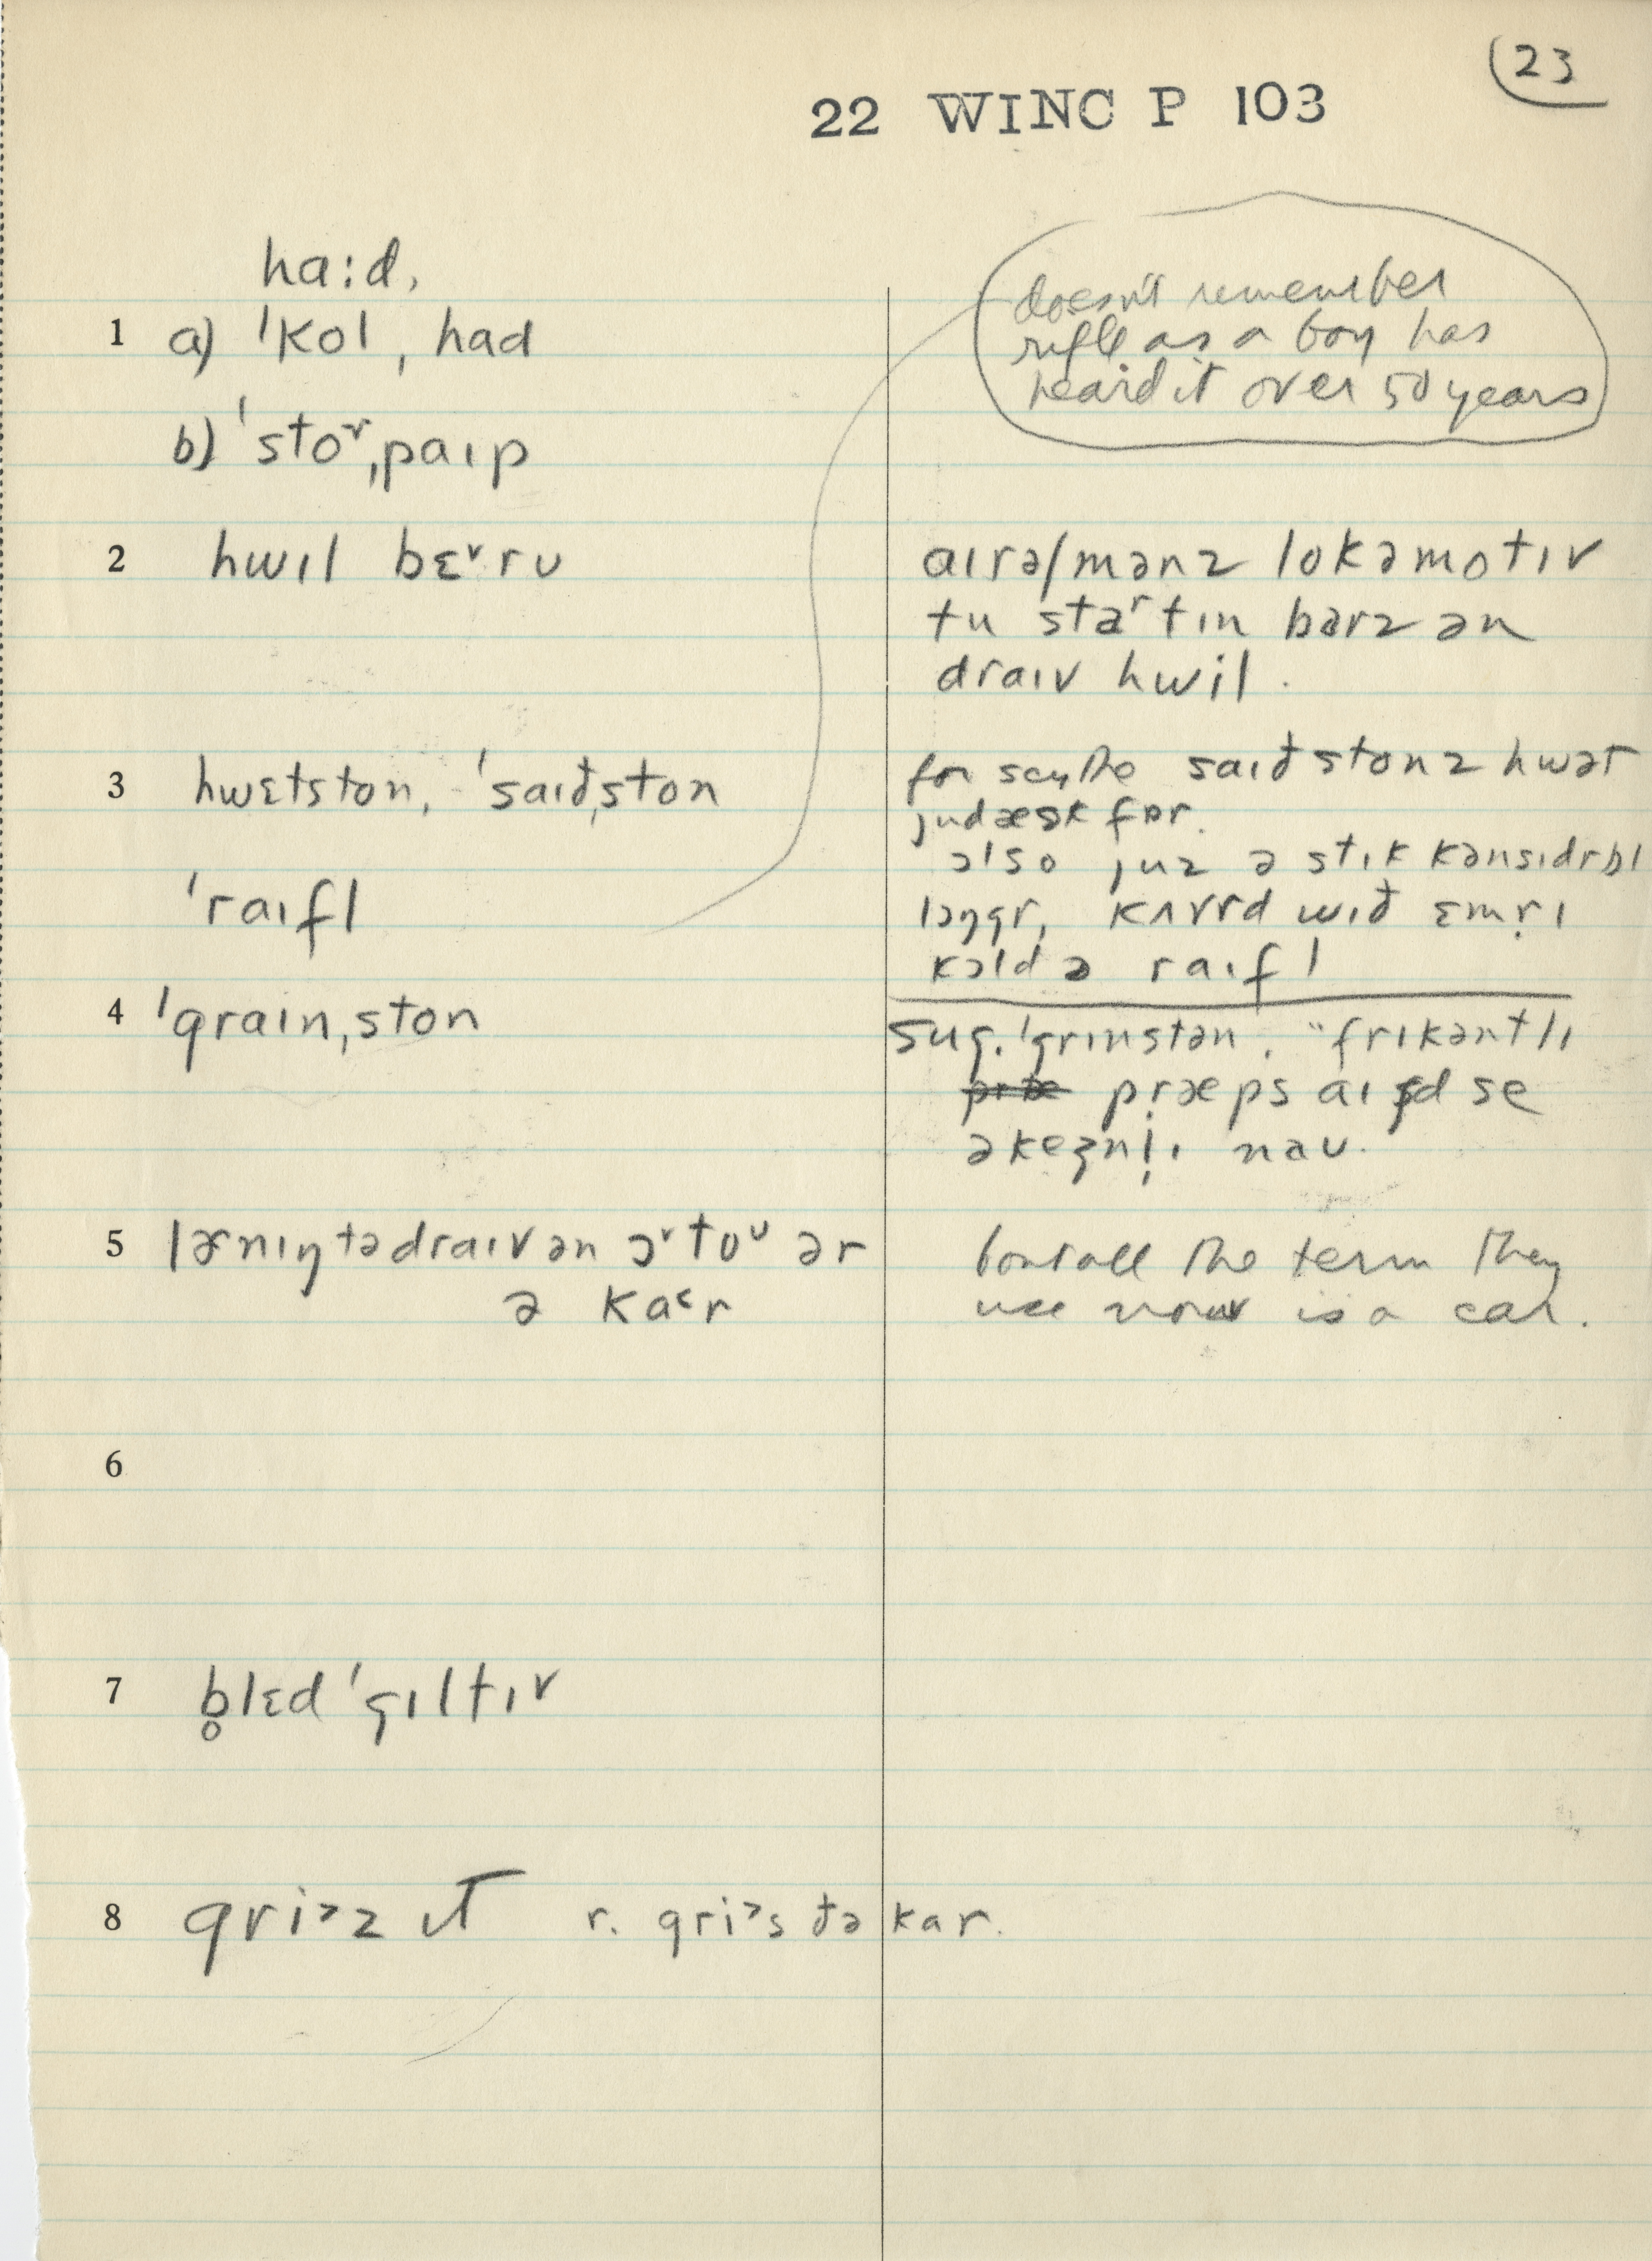 23
22 WINC P 103
ha:d,
1 a) ˈkol, had
b) ˈstoᵛˌpaɪp
doesn't remember
rifle as a boy has
heard it over 50 years
2 hwil bɛᵛrʊ
aɪrəlmənz lokəmotɪv
tu staʳtɪn barz ən
draɪv hwil.
3 hwɛtston, ˈsaɪðˌston
for scythe saɪðstonz hwət
judæsk fɒr.
ɔlso juz ə stɪk kənsɪdrbl
lɔŋgr, kʌvrd wɪð ɛmr̩ɪ
kɔld ə raɪfl
ˈraɪfl
4 ˈgraɪnˌston
sug. ˈgrɪnstən. "frikəntlɪ
pr̩æps aɪ d se
əkeʒnl̩ɪ naʊ.
5 lɚnɪŋ tə draɪv ən ɔᵛtoᵁ ər
ə ka˂r
bout all the term they
use now is a car.
6
7 b̥lɛd ˈgɪltɪv
8 gri˃z ɪt r. gri˃s ðə kar.